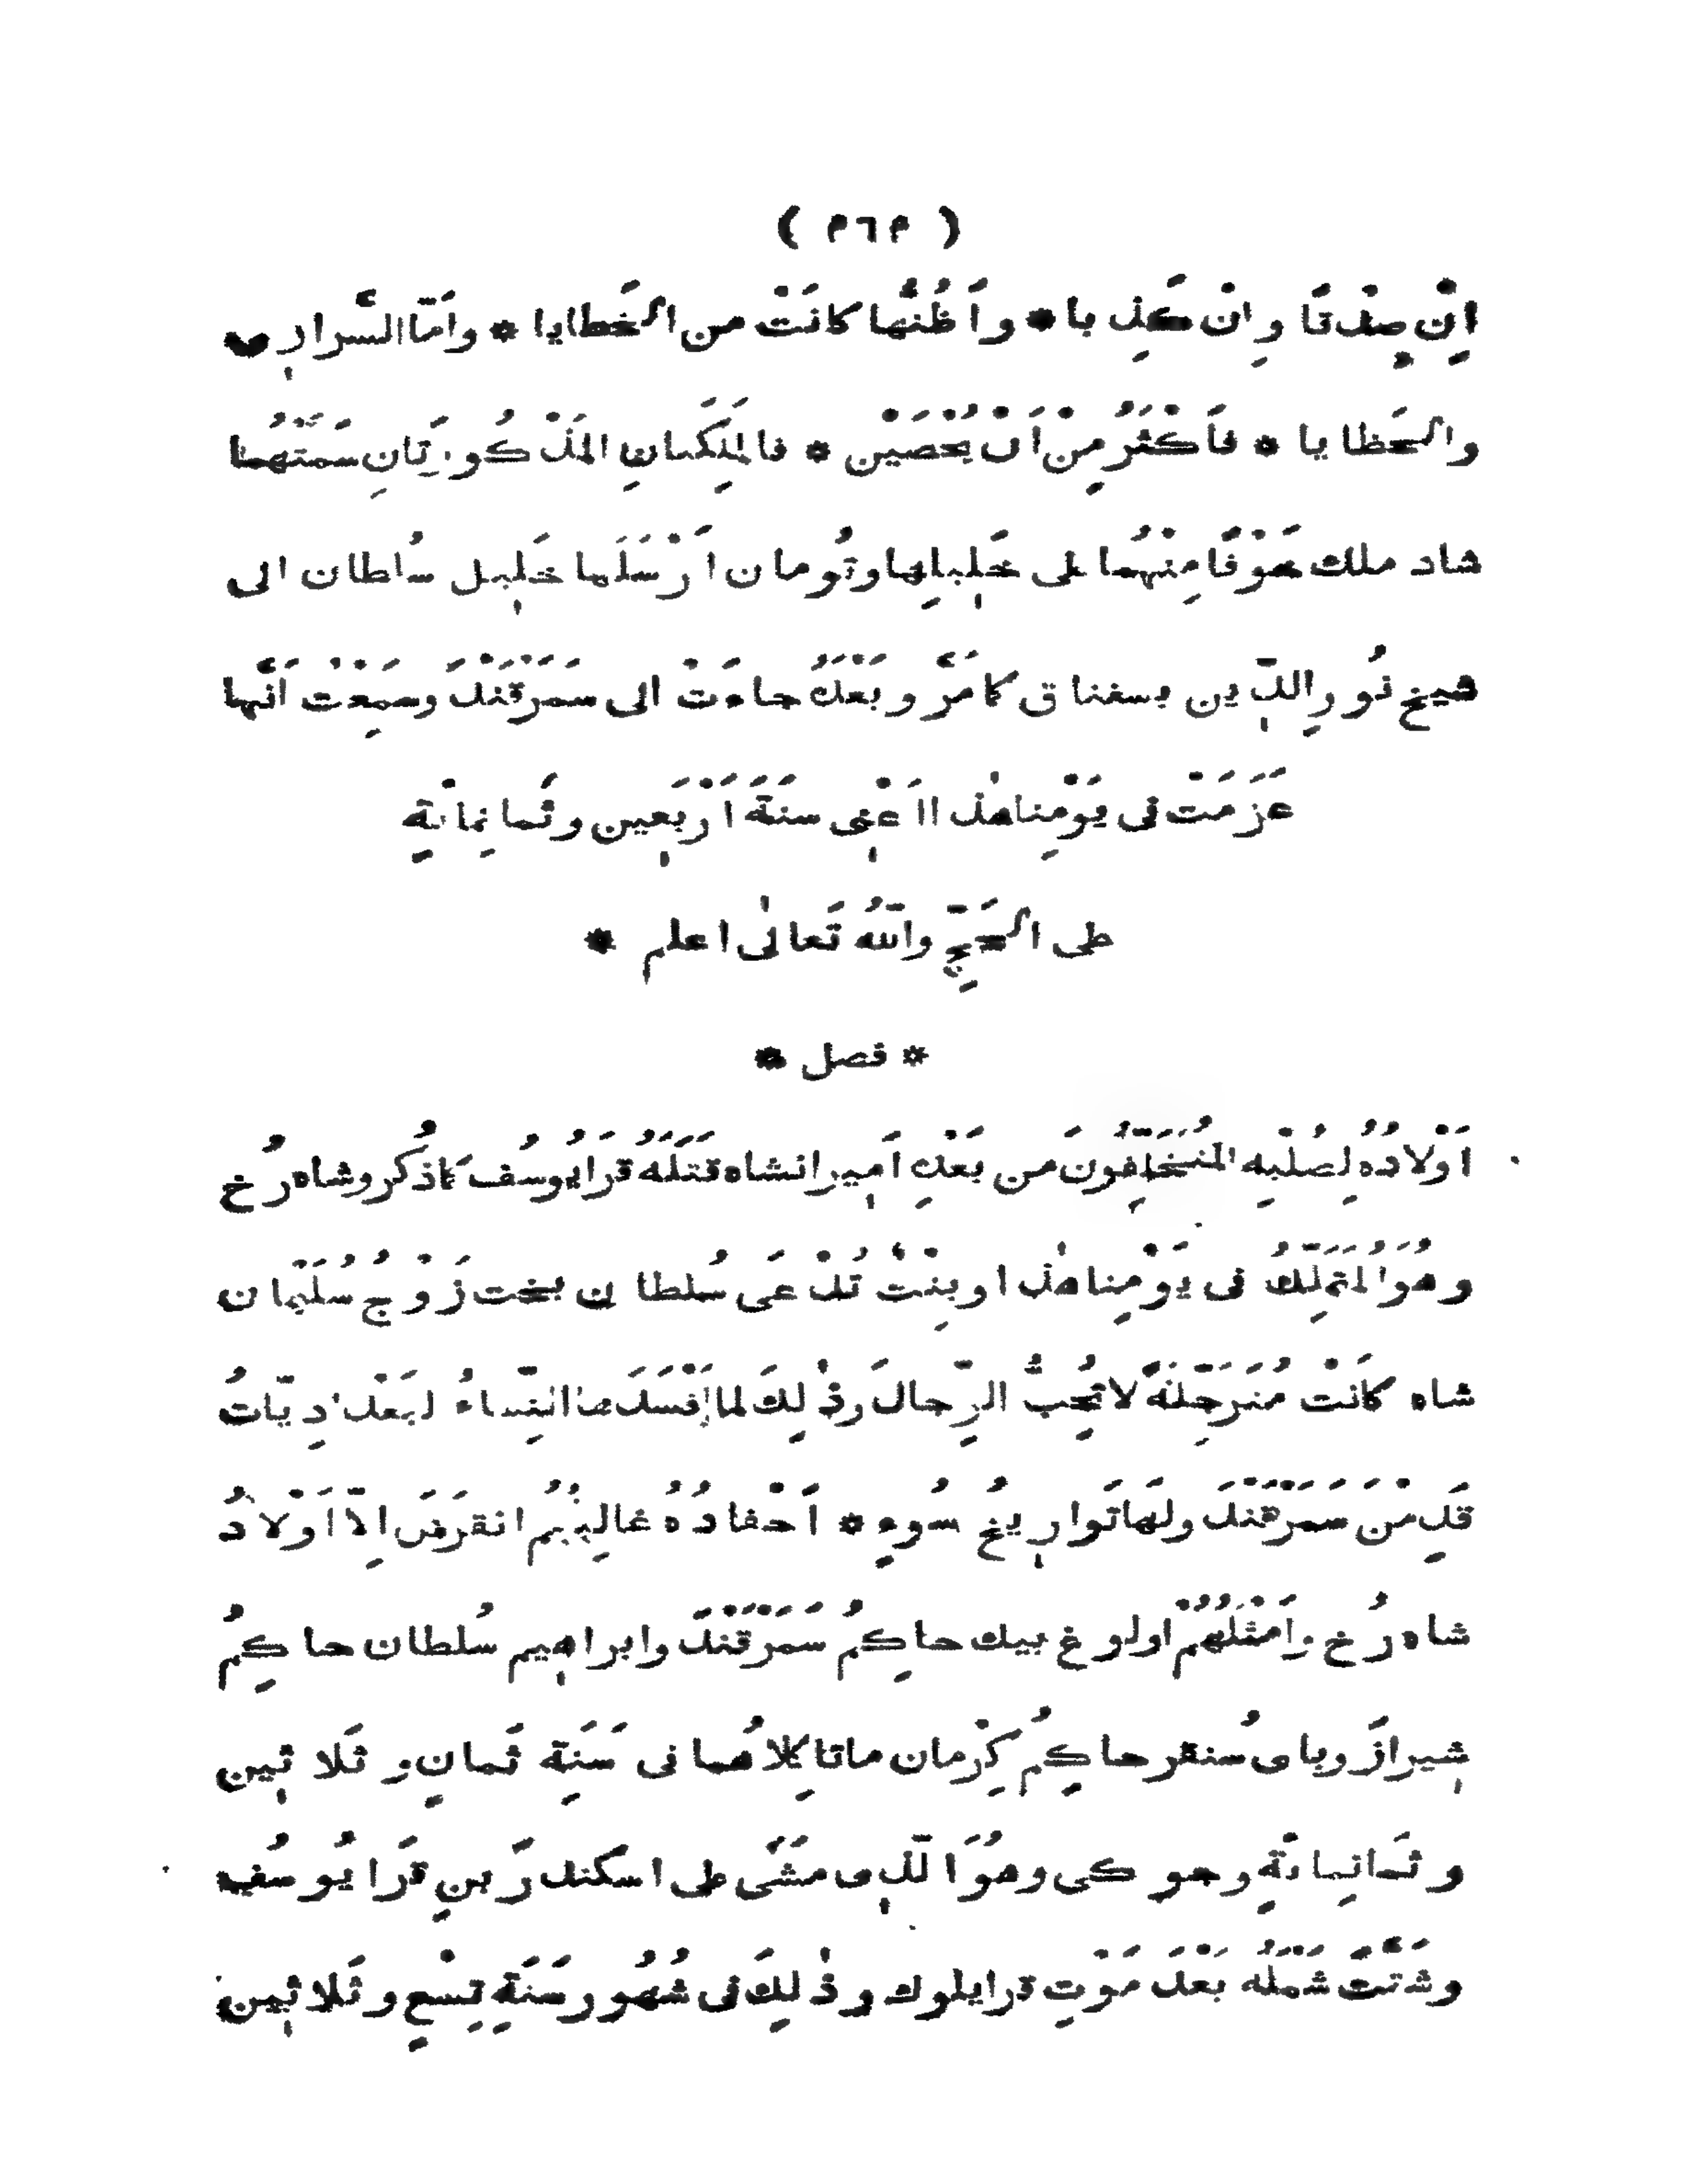 ( ٣٦٣ )
اِنْ صِدْقًا وِانْ كَذِبا * واَظُنُّها كانَتْ من الخَطايا * واَمّا السَّرارِى
والحَظايا * فاَكْثَرُ مِنْ اَنْ يُحْصَيْن * فالمَلِكَتانِ المَذْكُورَتانِ سَمَّتْهُما
شاد ملك خَوْفًا مِنْهُما على خَلِيلِها وتُومان اَرْسَلَها خَلِيل سُلطان الى
شيخ نُورِ الدِّين بسغناق كما مَرَّ وبَعْدَهُ جاءَتْ الى سَمَرْقَنْدَ وسَمِعْت اَنَّها
عَزَمَتْ فى يَوْمِنا هٰذا اَعْنِى سَنَةَ اَرْبَعِين وثَمانِمائَةٍ
على الحَجِّ واللّهُ تَعالٰى اعلم *
* فصل *
اَوْلادُهُ لِصُلْبِه المُتَخَلِّفُونَ من بَعْدِ اَمِيرانشاه قَتَلَهُ قرايوسُف كَما ذُكر وشاه رُخ
وهُوَ المُتَمَلِّكُ فى يَوْمِنا هٰذا وبِنْتٌ تُدْعَى سُلطان بخت زَوْجُ سُلَيْمان
شاه كانَتْ مُتَرَجِّلَةً لا تُحِبُّ الرِّجالَ وذٰلِكَ لما اَفْسَدَها النِّساءُ البَغْدادِيّاتُ
قَدِمْنَ سَمَرْقَنْدَ ولَها تَوارِيخُ سُوءٍ * اَحْفادُهُ غالِبُهُم انقَرَضَ اِلاّ اَوْلادُ
شاه رُخ واَمْثَلُهُمْ اولوغ بيك حاكِمُ سَمَرْقَنْدَ وابراهِيم سُلطان حاكِمُ
شِيرازَ وباى سُنقر حاكِمُ كِرْمان ماتا كِلاهُما فى سَنَةِ ثَمانٍ وثَلاثِين
وثَمانِمائَةٍ وجوكى وهُوَ الَّذِى مَشَّى على اسكندرَ بنِ قَرا يُوسُف
وشَتَّتَ شَمْلَهُ بعْدَ مَوْتِ قرايلوك وذٰلِكَ فى شُهُورِ سَنَةِ تِسْعٍ وثَلاثِين